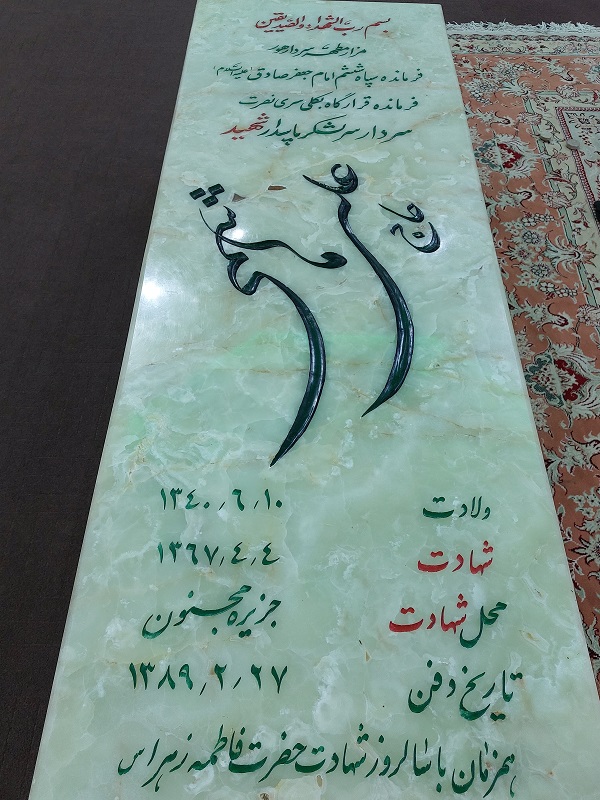 بسم رب الشهداء والصدیقین
مزار مطهر سردار هور
فرمانده سپاه ششم امام جعفر صادق (علیه‌السلام)
فرمانده قرارگاه بکلی سری نصرت
سردار سرلشکر پاسدار شهید
حاج علی هاشمی
ولادت ۱۳۴۰٫۶٫۱۰
شهادت ۱۳۶۷٫۴٫۴
محل شهادت جزیره مجنون
تاریخ دفن ۱۳۸۹٫۲٫۲۷
همزمان با سالروز شهادت حضرت فاطمه زهرا س